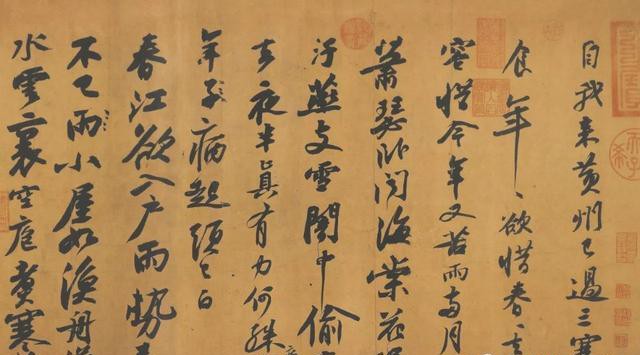 自我来黄州已過三寒
食年〻欲惜春〻
容惜今年又苦雨兩月
蕭瑟卧聞海棠花
汙燕支雪闇中偷
去夜半真有力何殊
年子病起頭已白
春江欲入户雨勢
不已雨小屋如漁舟
水雲裏空庖煮寒